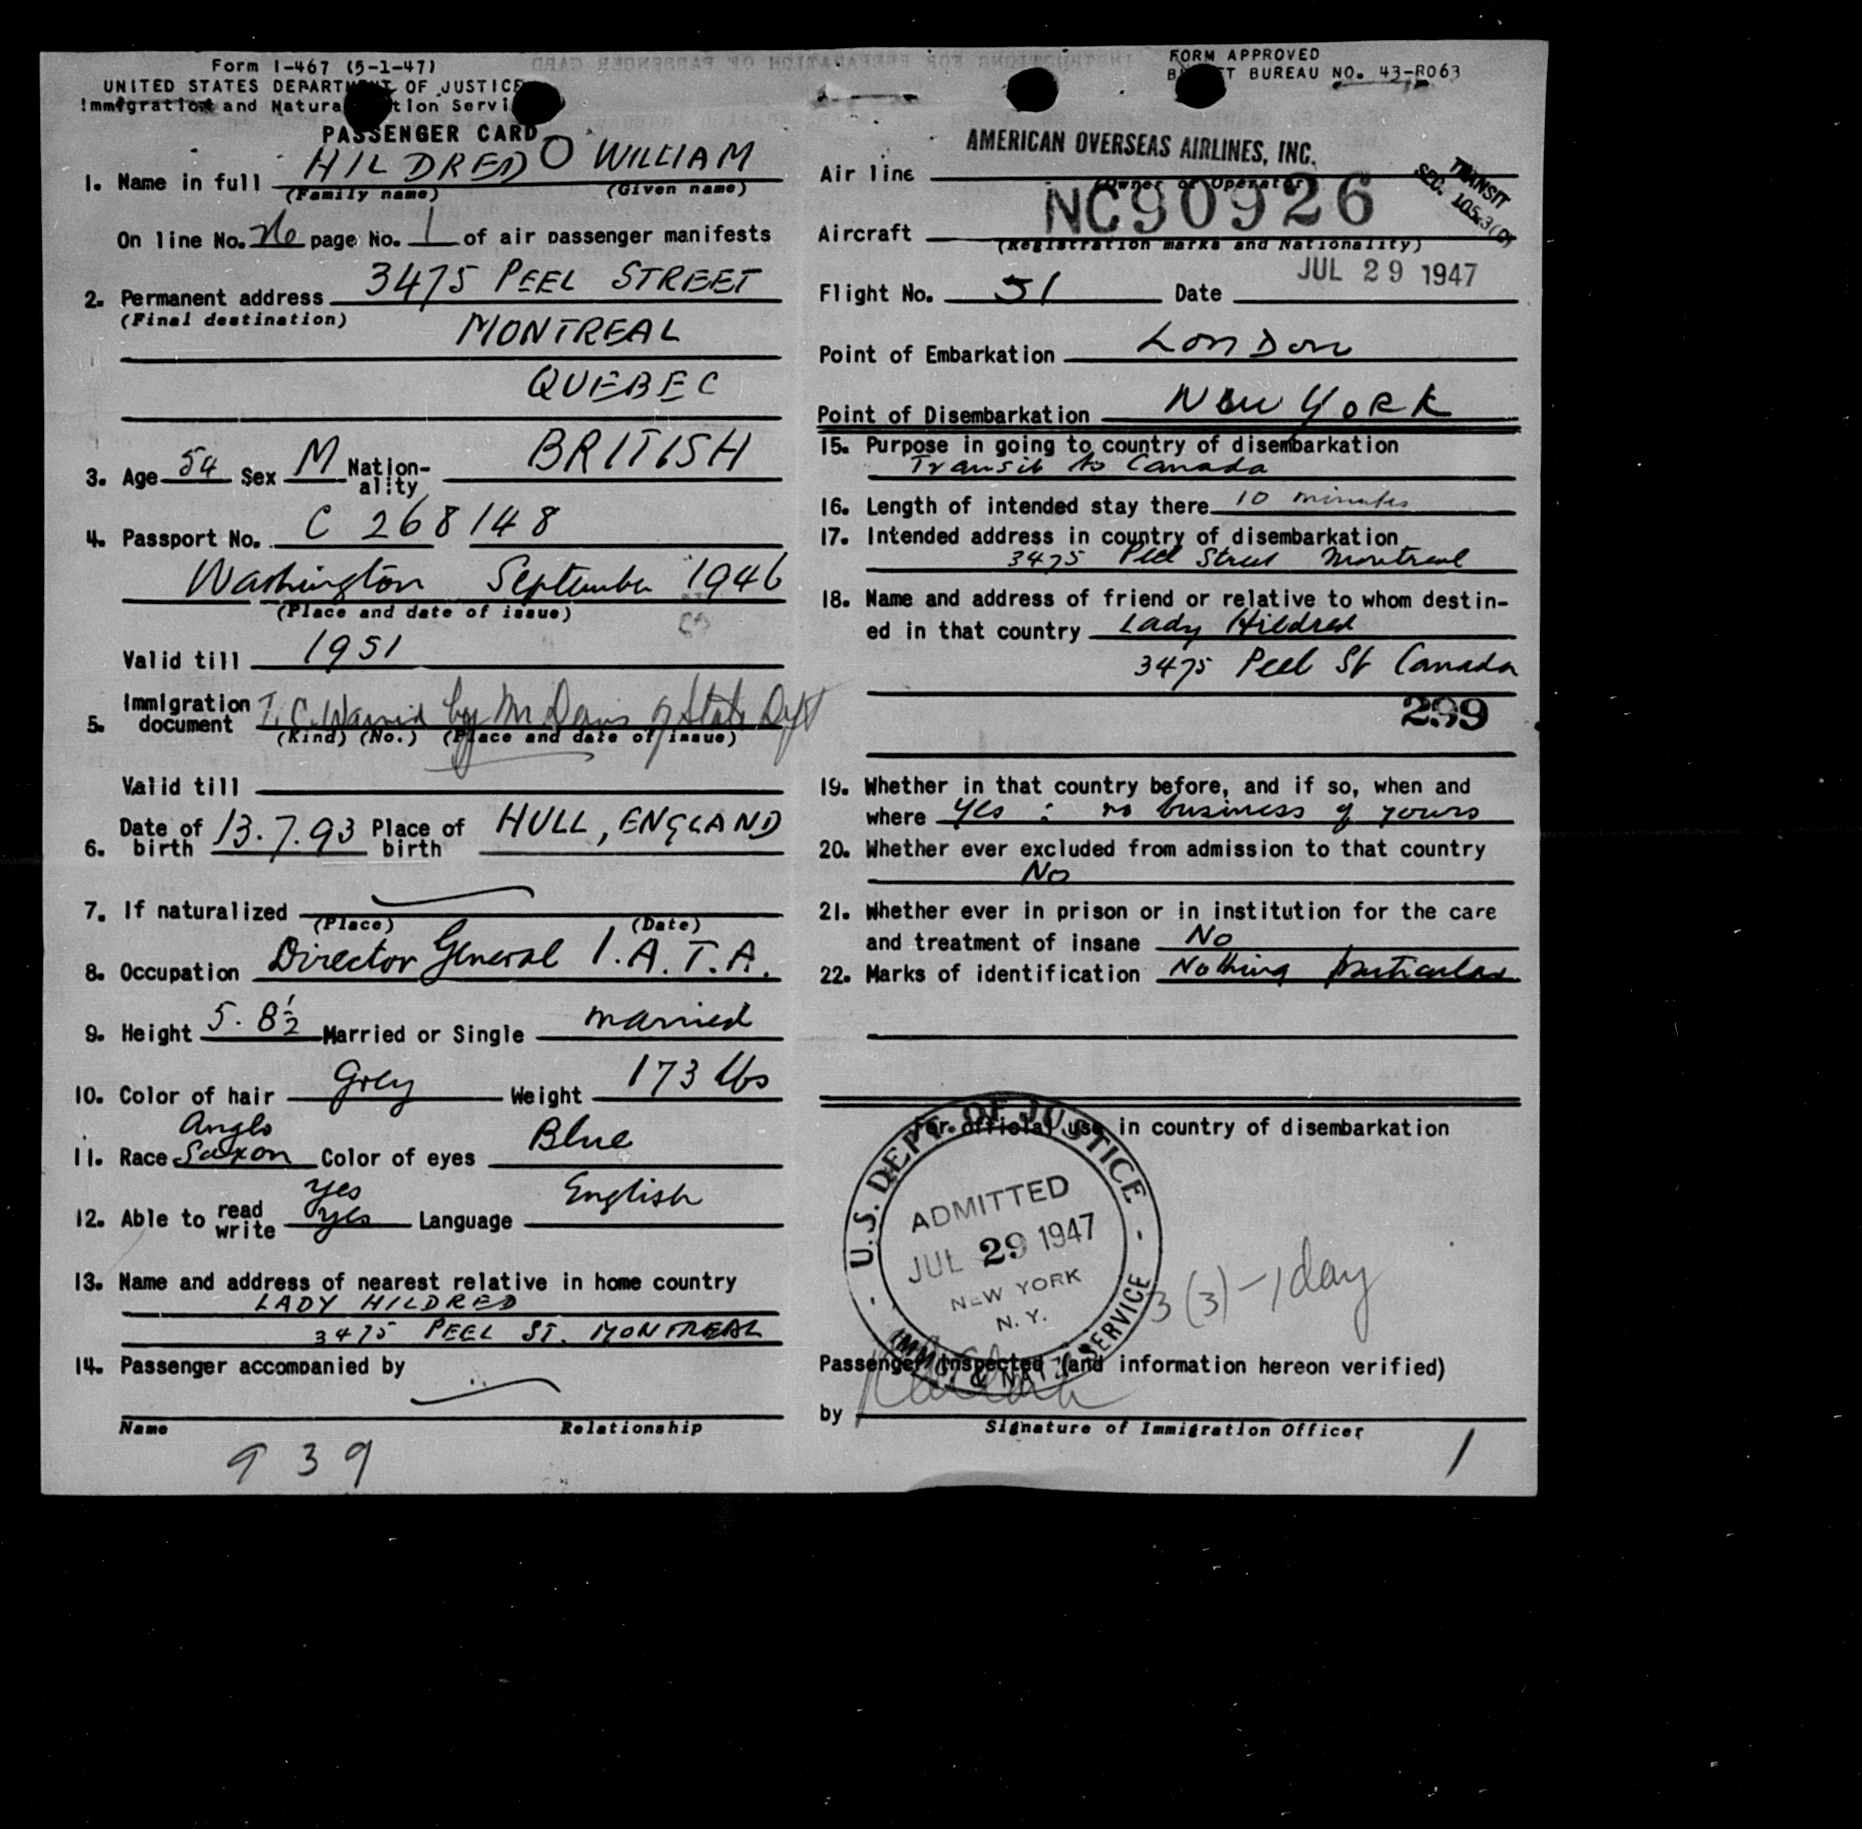 Form I-467 (5-1-47)
UNITED STATES DEPARTMENT OF JUSTICE
Immigration and Naturalization Servi
PASSENGER CARD
1. Name in full HILDRED WILLIAM
(Family name) (Given name)
On line No. page No. 1 of air passenger manifests
2. Permanent address 3475 PEEL STREET
(Final destination)
MONTREAL
QUEBEC
3. Age 54 Sex M Nation-ality BRITISH
4. Passport No. C 268148
Washington September 1946
(Place and date of issue)
Valid till 1951
5. Immigration document by Mr Davis of State Dept
(Kind) (No.) (Place and date of issue)
Valid till
6. Date of birth 13.7.93 Place of birth HULL, ENGLAND
7. If naturalized
(Place) (Date)
8. Occupation Director General I.A.T.A.
9. Height 5. 8½ Married or Single married
10. Color of hair Grey Weight 173 lbs
11. Race Anglo Saxon Color of eyes Blue
12. Able to read yes write yes Language English
13. Name and address of nearest relative in home country
LADY HILDRED
3475 PEEL ST. MONTREAL
14. Passenger accompanied by
Name Relationship
939
FORM APPROVED
BUDGET BUREAU NO. 43-R063
AMERICAN OVERSEAS AIRLINES, INC.
Air line
(Owner or Operator)
TRANSIT
SEC. 105.3(c)
Aircraft NC90926
(Registration marks and Nationality)
Flight No. 51 Date JUL 29 1947
Point of Embarkation London
Point of Disembarkation New York
15. Purpose in going to country of disembarkation
Transit to Canada
16. Length of intended stay there 10 minutes
17. Intended address in country of disembarkation
3475 Peel Street Montreal
18. Name and address of friend or relative to whom destin-
ed in that country Lady Hildred
3475 Peel St Canada
299
19. Whether in that country before, and if so, when and
where Yes : no business of yours
20. Whether ever excluded from admission to that country
No
21. Whether ever in prison or in institution for the care
and treatment of insane No
22. Marks of identification Nothing particular
For official use in country of disembarkation
U.S. DEPT. OF JUSTICE
ADMITTED
JUL 29 1947
NEW YORK
N. Y.
IMM. & NATZ. SERVICE
3(3)-1 day
Passenger inspected (and information hereon verified)
by
Signature of Immigration Officer
1